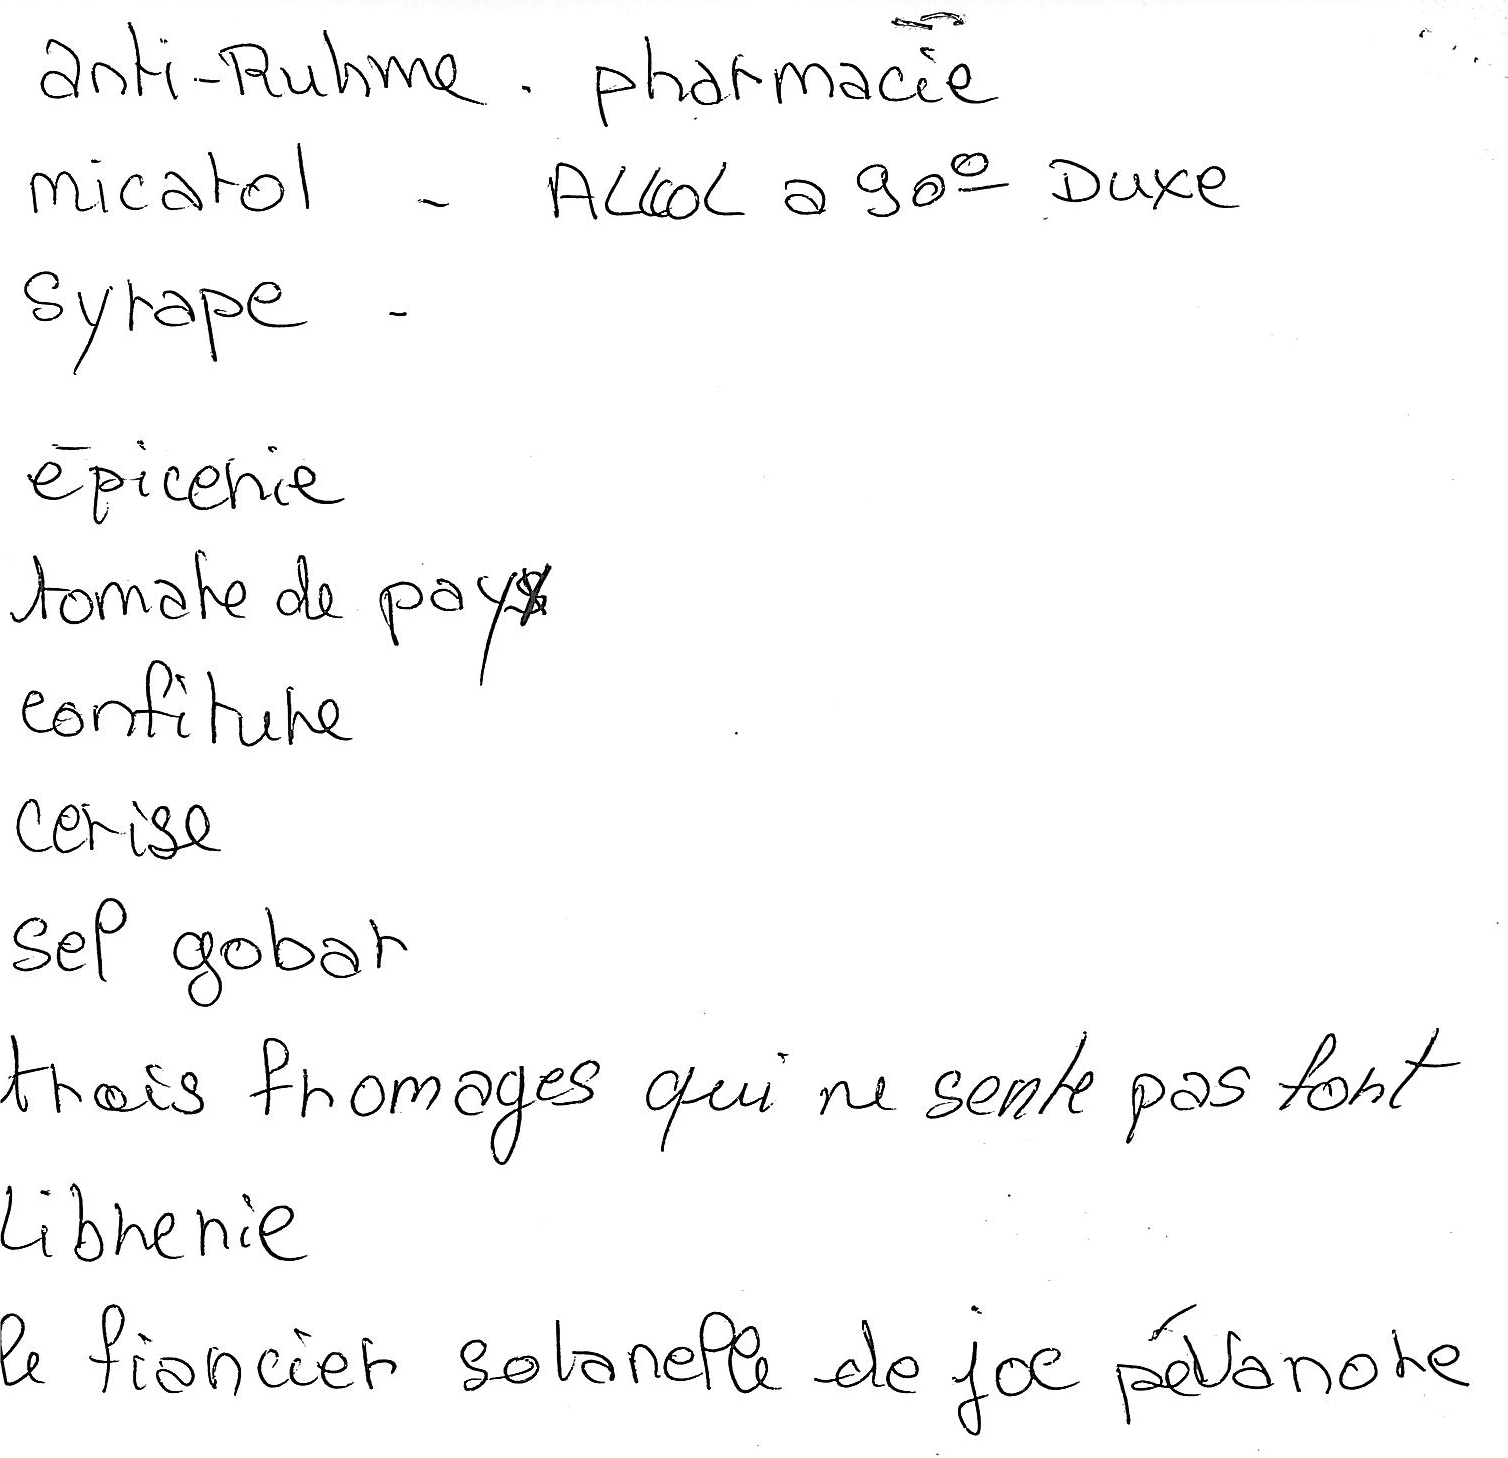 anti-Ruhme. pharmacie
micatol - ALCOL a 90° Duxe
Syrape -
épicerie
tomate de pays
confiture
cerise
sel gobar
trois fromages qui ne sente pas fort
Librerie
le fiancier solanelle de joe pévanote